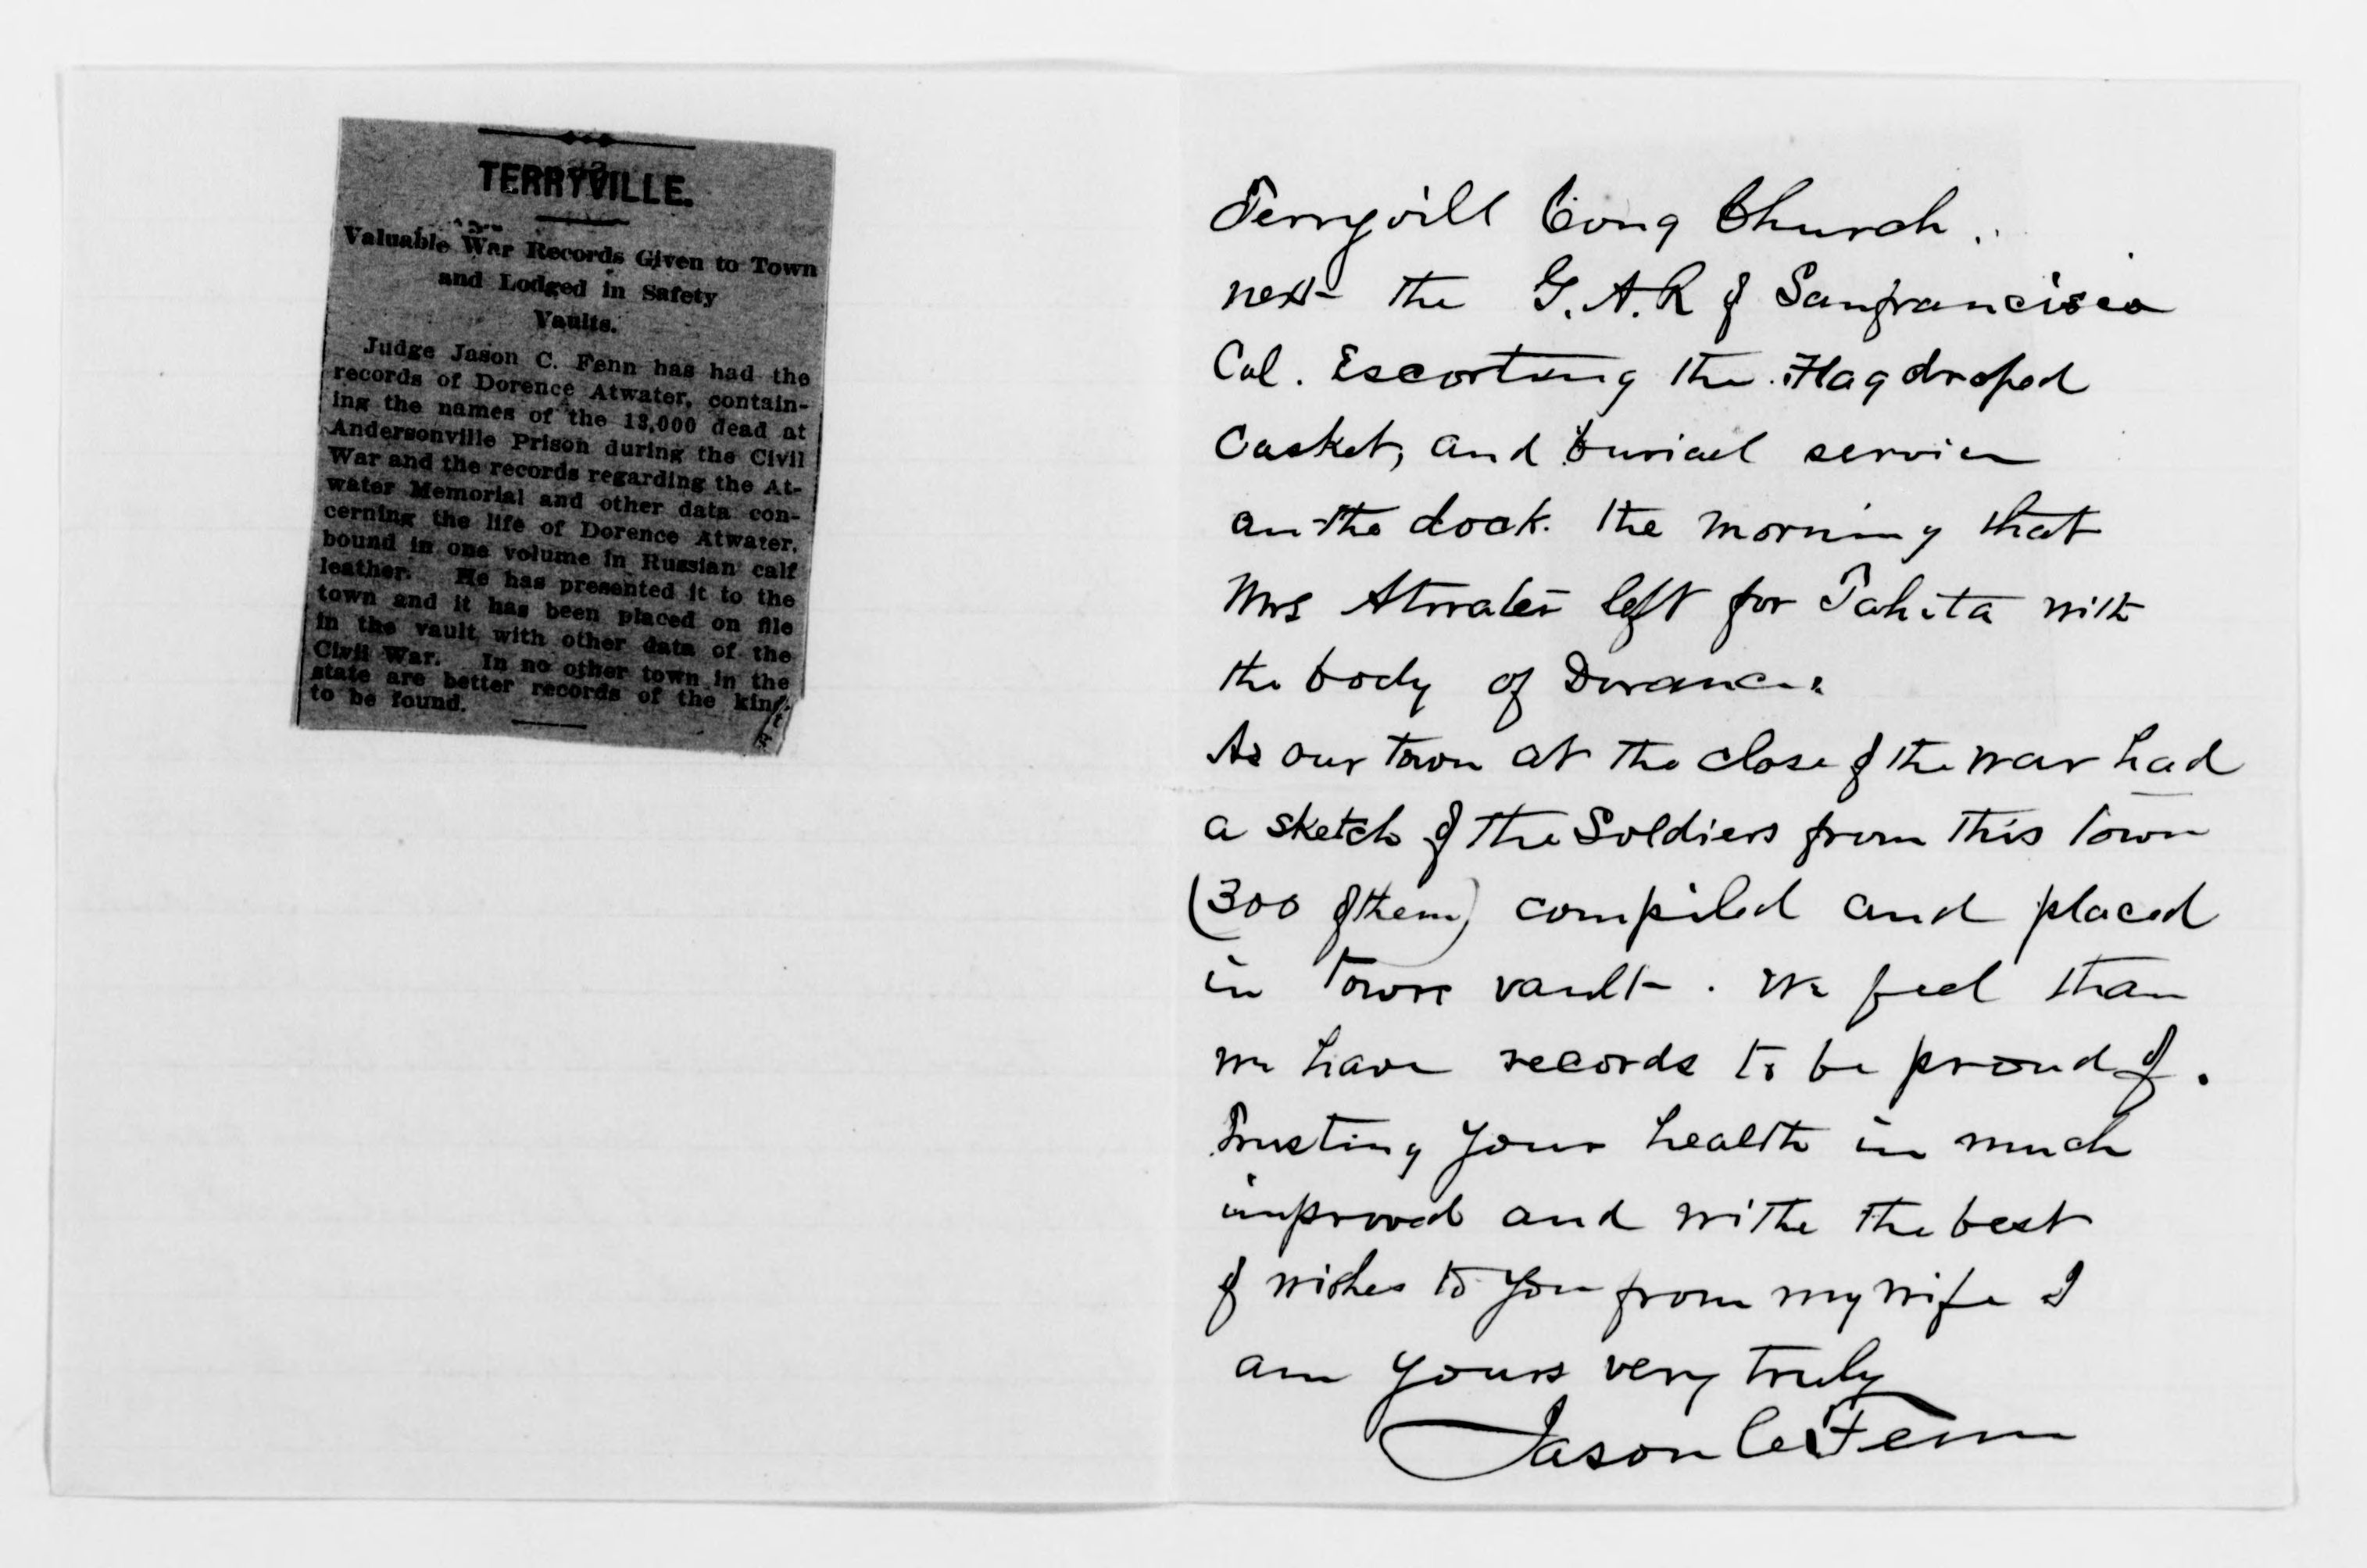 TERRYVILLE.
Valuable War Records Given to Town
and Lodged in Safety
Vaults.
Judge Jason C. Fenn has had the
records of Dorence Atwater, contain-
ing the names of the 13,000 dead at
Andersonville Prison during the Civil
War and the records regarding the At-
water Memorial and other data con-
cerning the life of Dorence Atwater,
bound in one volume in Russian calf
leather. He has presented it to the
town and it has been placed on file
in the vault with other data of the
Civil War. In no other town in the
state are better records of the kind
to be found.
Terryvill Cong Church.
next the G.A.R of Sanfrancisco
Cal. Escorting the Flag draped
Casket, and burial service
on the dock. the morning that
Mrs Atwater left for Tahita with
the body of Dorance.
As our town at the close of the war had
a sketch of the Soldiers from this town
(300 of them) compiled and placed
in town vault. We feel that
we have records to be proud of.
Trusting your health is much
improved and withe the best
of wishes to you from my wife I
am yours very truly
Jason C Fenn